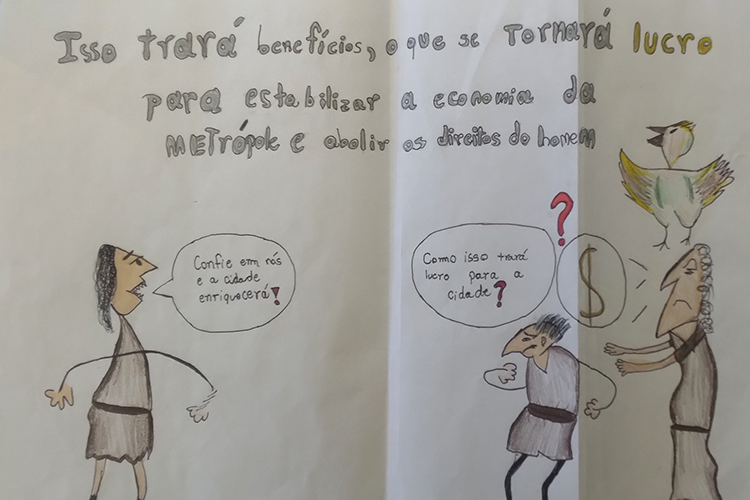 Isso trará benefícios, o que se TORNARÁ lucro
para estabilizar a economia da
METRÓPOLE e abolir os direitos do homem
Confie em nós
e a cidade
enriquecerá!
Como isso trará
lucro para a
cidade?
?
$